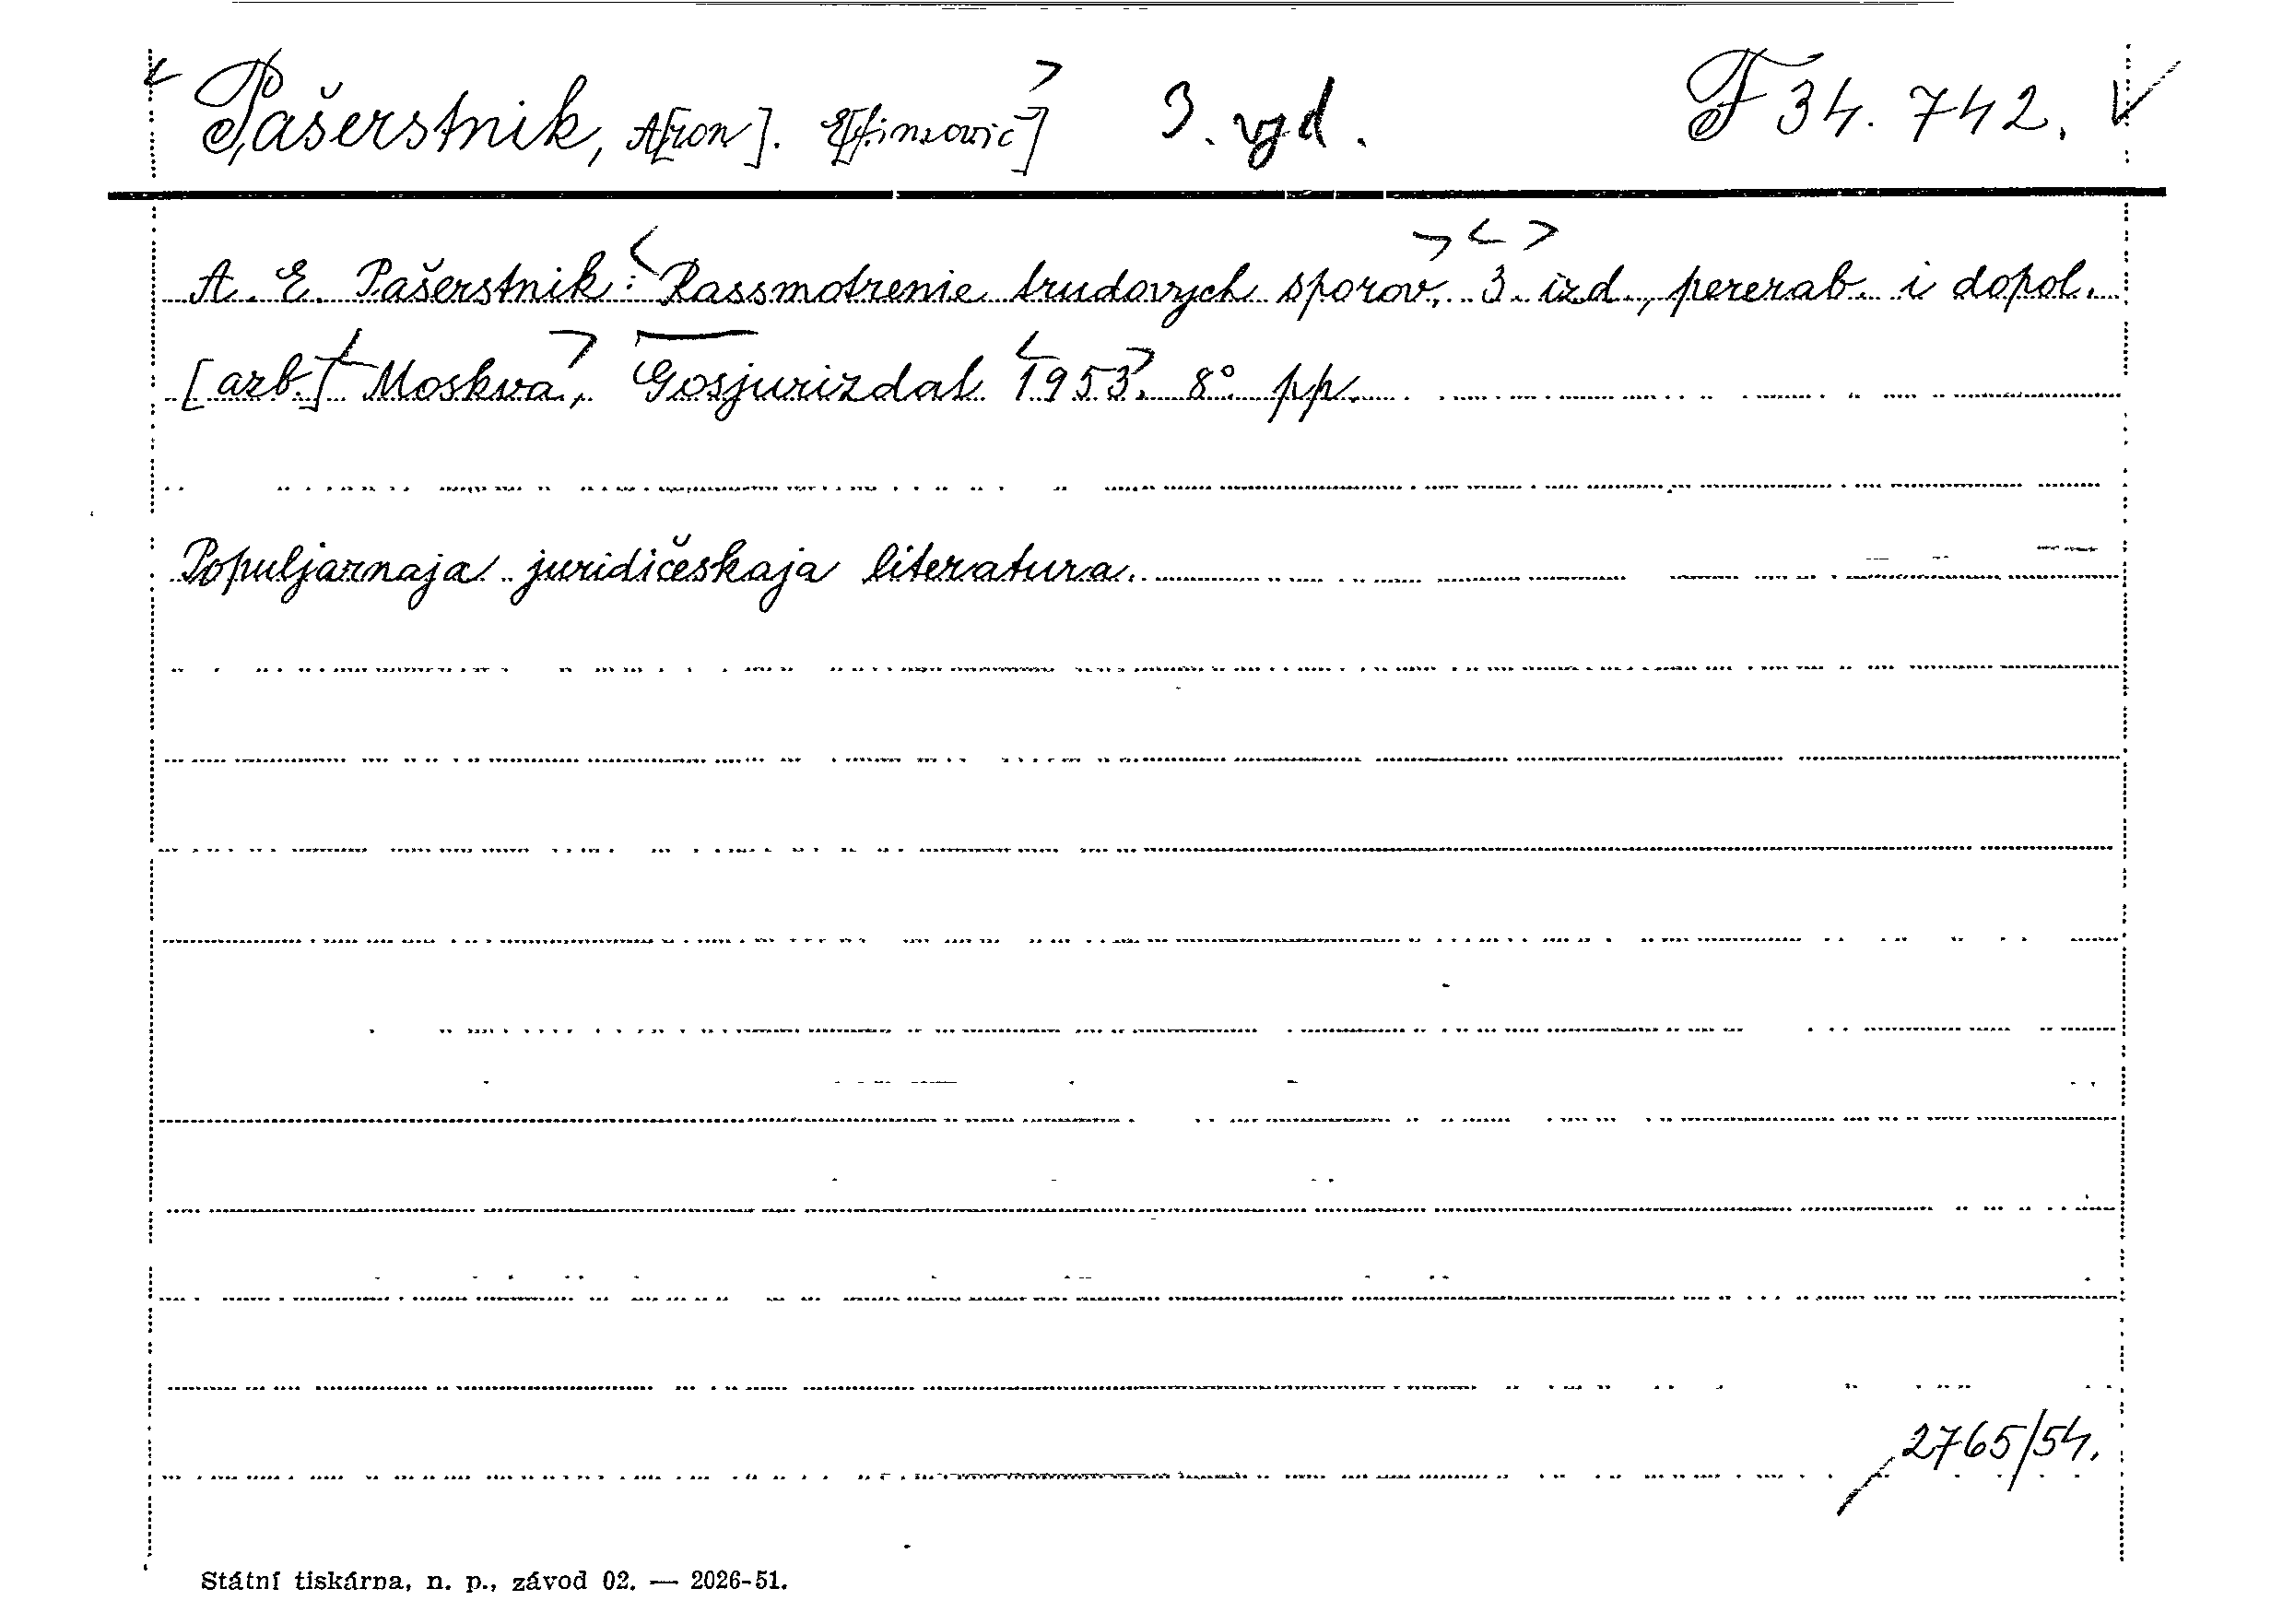 Pašerstnik, A[ron]. E[fimovič] 3. vyd. F 34.742.
A. E. Pašerstnik: Rassmotrenie trudovych sporov. 3. izd., pererab. i dopol.
[azb.] Moskva, Gosjurizdat 1953. 8° pp.
Populjarnaja juridičeskaja literatura.
2765/54.
Státní tiskárna, n. p., závod 02. — 2026-51.